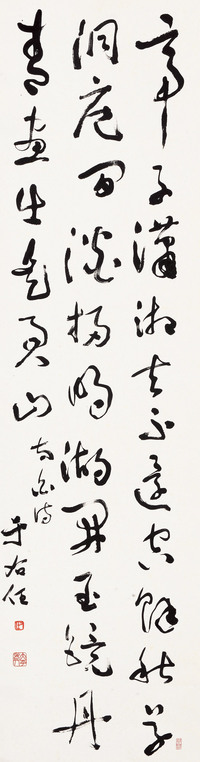 帝子潇湘去不還空餘秋草
洞庭間淡掃明湖開玉鏡丹
青畫出是君山
太白诗
于右任